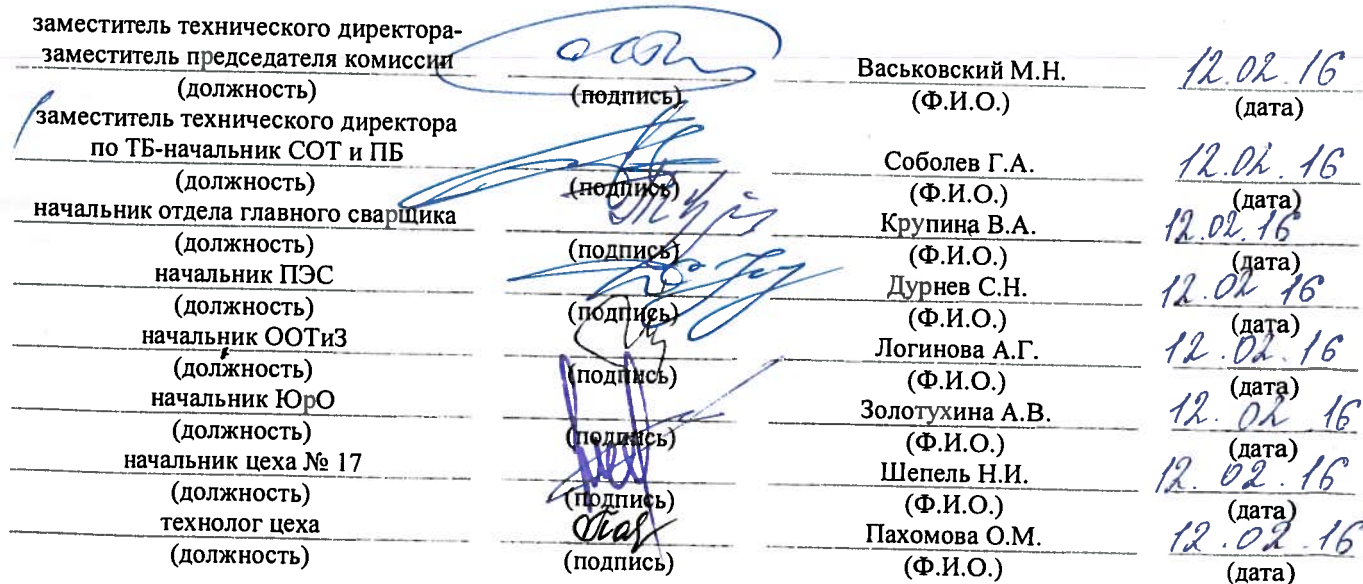 заместитель технического директора-
заместитель председателя комиссии Васьковский М.Н. 12.02.16
(должность) (подпись) (Ф.И.О.) (дата)
заместитель технического директора
по ТБ-начальник СОТ и ПБ Соболев Г.А. 12.02.16
(должность) (подпись) (Ф.И.О.) (дата)
начальник отдела главного сварщика Крупина В.А. 12.02.16
(должность) (подпись) (Ф.И.О.) (дата)
начальник ПЭС Дурнев С.Н. 12.02 16
(должность) (подпись) (Ф.И.О.) (дата)
начальник ООТиЗ Логинова А.Г. 12.02.16
(должность) (подпись) (Ф.И.О.) (дата)
начальник ЮрО Золотухина А.В. 12.02 16
(должность) (подпись) (Ф.И.О.) (дата)
начальник цеха № 17 Шепель Н.И. 12.02.16
(должность) (подпись) (Ф.И.О.) (дата)
технолог цеха Пахомова О.М. 12.02.16
(должность) (подпись) (Ф.И.О.) (дата)